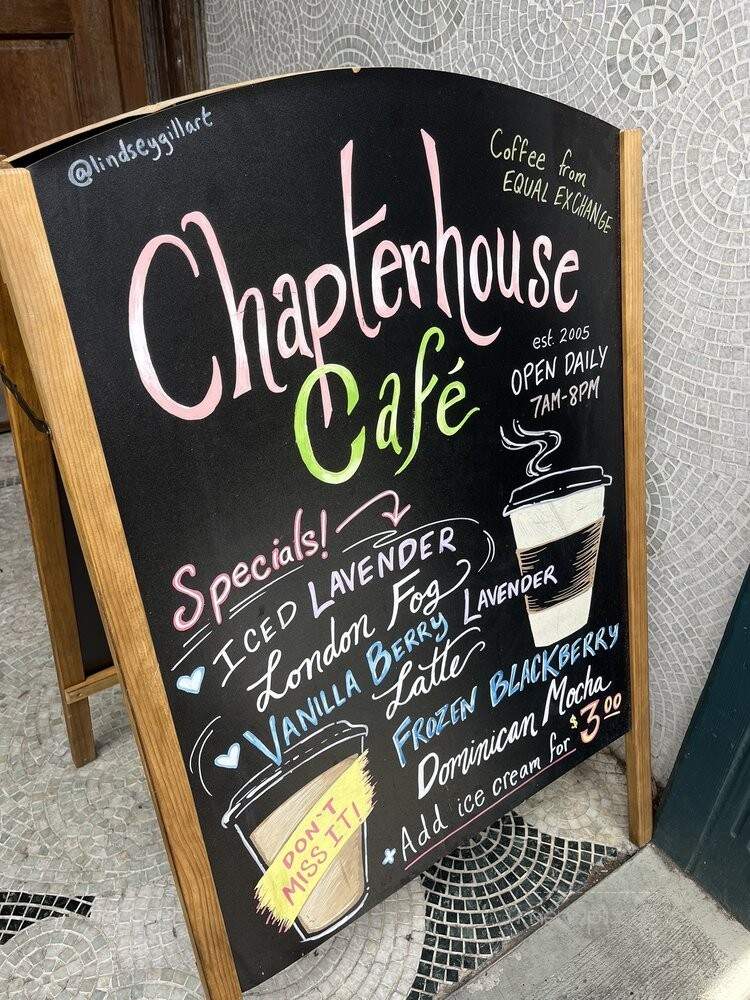 @lindseygillart
Coffee from
EQUAL EXCHANGE
Chapterhouse
Café
est. 2005
OPEN DAILY
7AM-8PM
Specials!
ICED LAVENDER
London Fog
VANILLA BERRY LAVENDER
Latte
FROZEN BLACKBERRY
Dominican Mocha
Add ice cream for $3.00
DON'T
MISS IT!